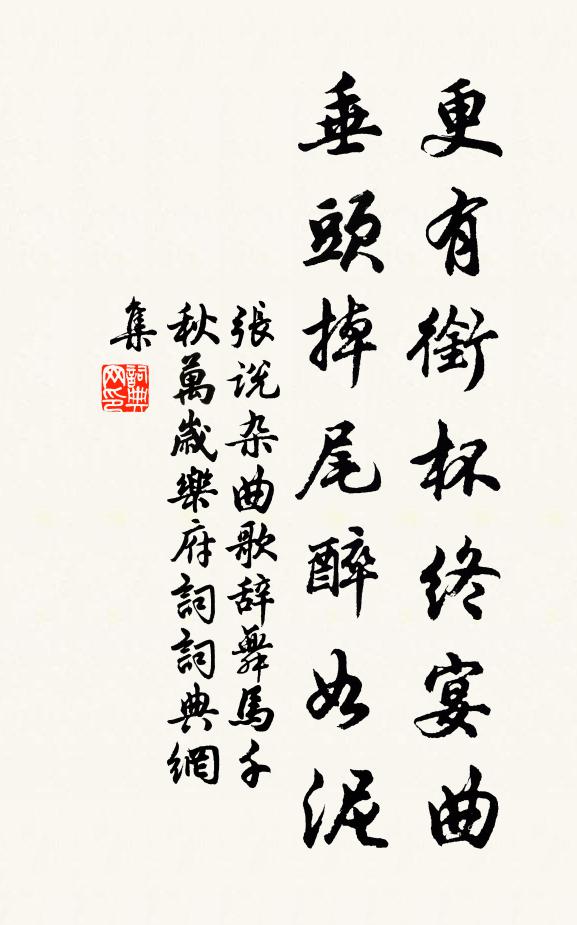 更有銜杯終宴曲
垂頭掉尾醉如泥
張说杂曲歌辞舞馬千
秋萬歲樂府詞詞典網
集
詞典
网印